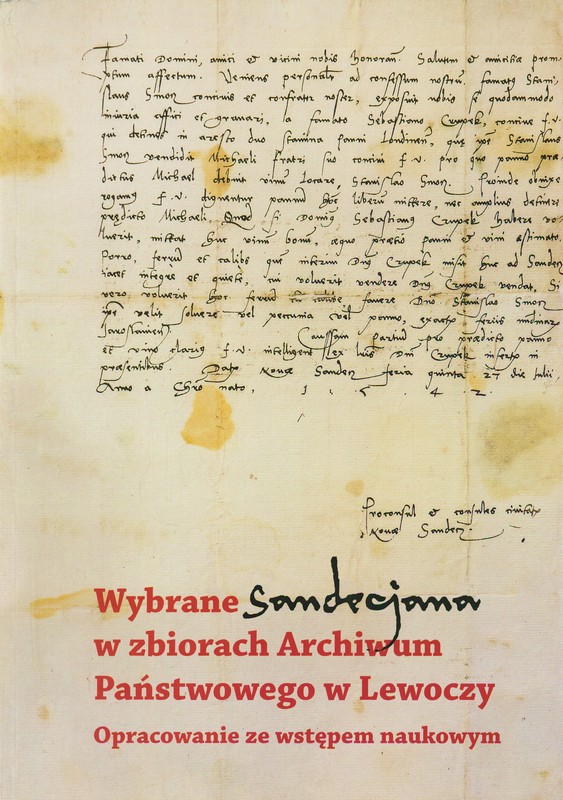 Famati Domini, amici et vicini nobis honoran. Salutem et amicitiæ prom-
ptum affectum. Veniens personalr ad consessum nostru famatꝰ Stani
slaus Smon concivis et confrater noster, exposuit nobis se quodammodo
iniuria affici et gravari, a famato Sebastiano Czupek, concive f. v.
qui detinet in aresto duo stamina panni Londinen, quæ Stanislaus
Smon vendidit Michaeli fratri suo concivi f. v. pro quo panno præ
dictus Michael debuit vinu locare, Stanislao Smon. Proinde obnixe
rogamꝰ f. v. dignentur pannu hoc liberu mittere, nec amplius detinere
prædicto Michaeli, Quod si Dominꝰ Sebastianꝰ Czupek habere vo-
luerit, mittat huc vinu bonu, æquo prætio panni et vini æstimato.
Porro, ferru et calibs que interim Dnꝰ Czupek misit huc ad Sandecz
iacet integre et quiete, cui voluerit vendere Dnꝰ Czupek vendat, Si
vero voluerit hoc ferru favere Dno Stanislao Smon
velit solvere vel pecunia vel panno, exacto feriis
Jaroslavien. Caussam pro prædicto panno
et vino clariꝰ f. v. intelliget ex Dni Czupek inserto in
præsentibus. Dato Novæ Sandecz feria quinta 27 die Iulii,
Anno a Chro nato, 1. 5. 4. 2.
Proconsul et consules civitatis
Novæ Sandecz.
Wybrane Sandecjana
w zbiorach Archiwum
Państwowego w Lewoczy
Opracowanie ze wstępem naukowym